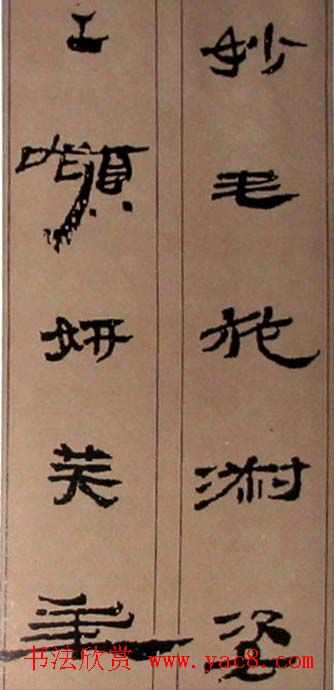 妙毛施淑姿
工嚬妍笑年
书法欣赏 www.yac8.com